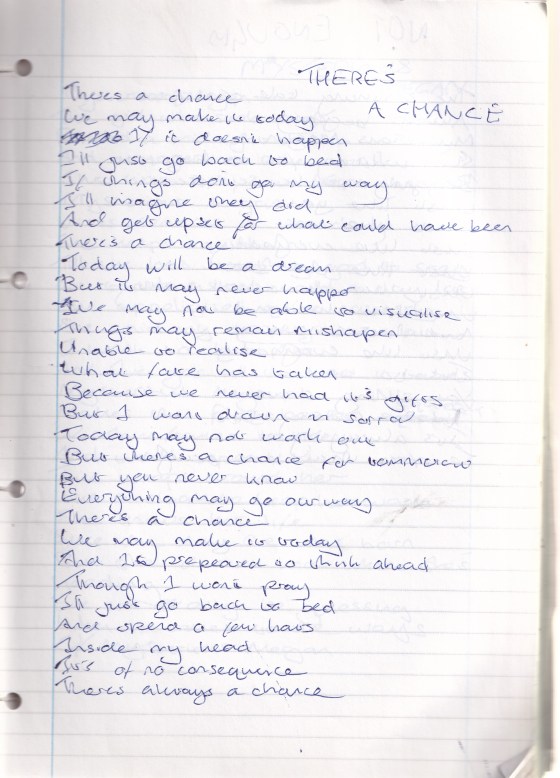 THERE'S
A CHANCE
There's a chance
We may make it today
If it doesn't happen
I'll just go back to bed
If things don't go my way
I'll imagine they did
And get upset for what could have been
There's a chance
Today will be a dream
But it may never happen
We may not be able to visualise
Things may remain mishapen
Unable to realise
What fate has taken
Because we never had it's gifts
But I won't drown in sorrow
Today may not work out
But there's a chance for tommorow
But you never know
Everything may go our way
There's a chance
We may make it today
And I prepeared to think ahead
Though I won't pray
I'll just go back to bed
And spend a few hours
Inside my head
It's of no consequence
There's always a chance